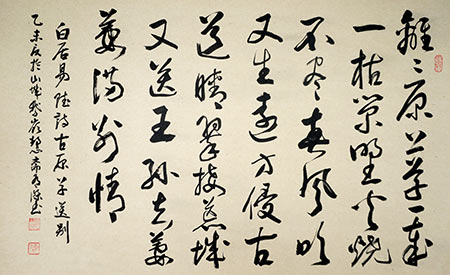 離〻原上草一歲
一枯榮野火燒
不盡春風吹
又生遠方侵古
道晴翠接荒城
又送王孫去萋
萋滿別情
白居易詩古原草送別
乙未夏於山城